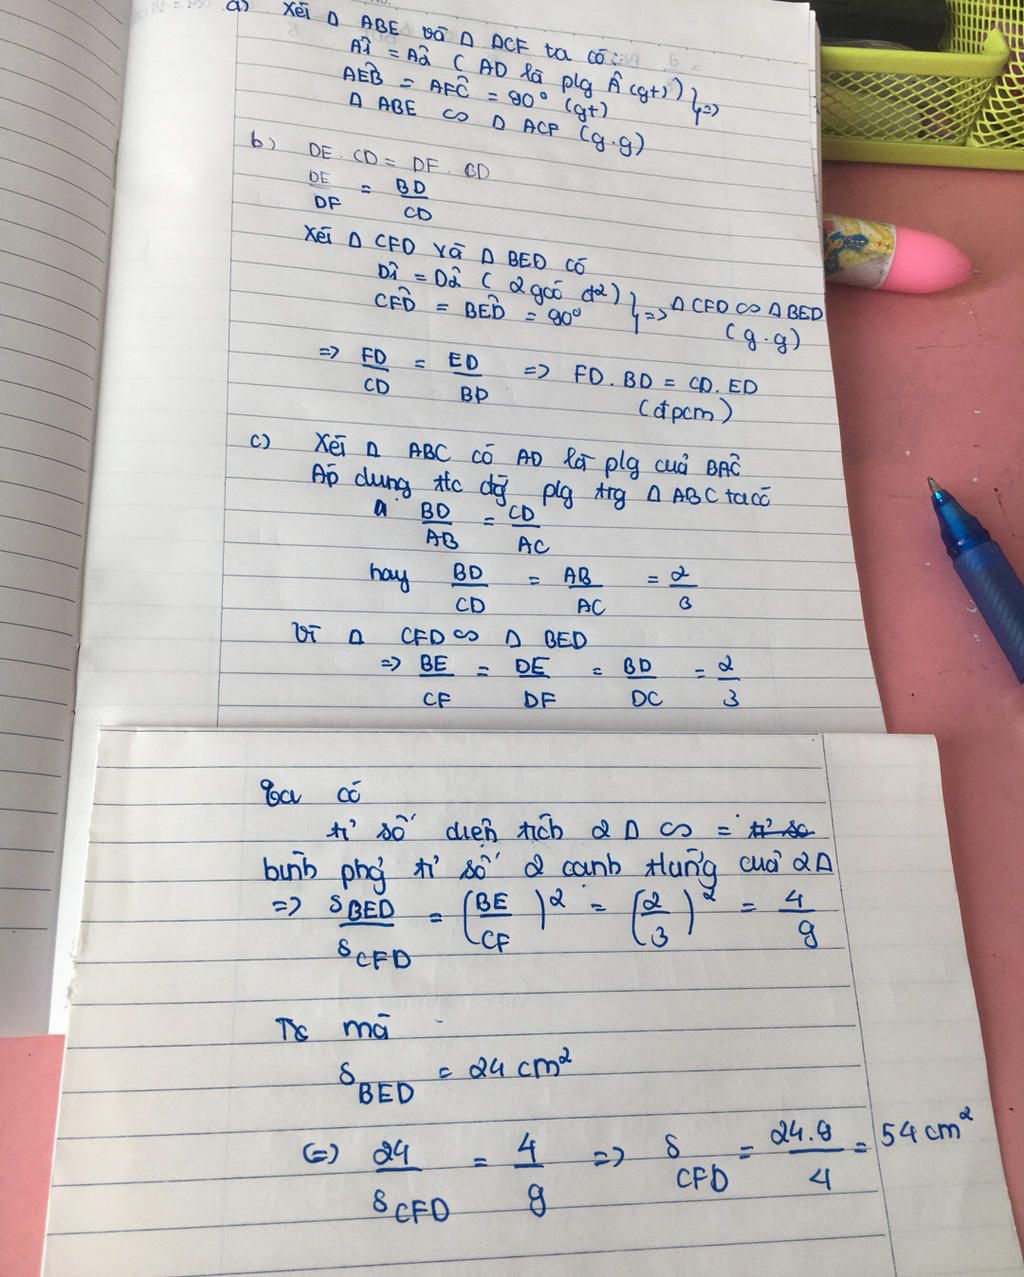 a) Xét Δ ABE và Δ ACF ta có:
Â1 = Â2 ( AD là plg Â (gt) )
AÊB = AF̂C = 90° (gt) } =>
Δ ABE ∽ Δ ACF (g.g)
b) DE . CD = DF . BD
DE/DF = BD/CD
Xét Δ CFD và Δ BED có
D̂1 = D̂2 ( 2 góc đ2 )
CF̂D = BÊD = 90° } => Δ CFD ∽ Δ BED
(g.g)
=> FD/CD = ED/BD => FD . BD = CD . ED
(đpcm)
c) Xét Δ ABC có AD là plg của BÂC
Áp dụng t/c đg plg trg Δ ABC ta có
BD/AB = CD/AC
hay BD/CD = AB/AC = 2/3
Vì Δ CFD ∽ Δ BED
=> BE/CF = DE/DF = BD/DC = 2/3
Ta có
tỉ số diện tích 2 Δ ∽ = tỉ số
bình phg tỉ số 2 cạnh tứng của 2Δ
=> S BED / S CFD = (BE/CF)² = (2/3)² = 4/9
mà
S BED = 24 cm²
(=) 24/S CFD = 4/9 => S CFD = 24.9/4 = 54 cm²